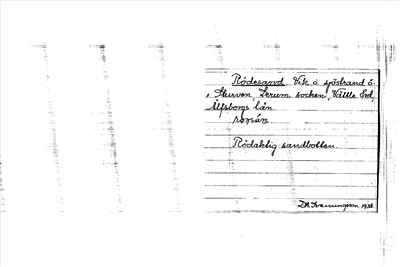 Rödesand Vik o sjöstrand ö.
i Skurven, Lerum socken, Vättle hd,
Älfsborgs län
Rödaktig sandbotten.
1938